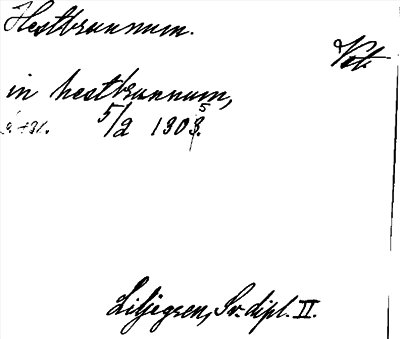 Hestbrunnum.
Vet.
in hestbrunnum,
5/2 1303.
Liljegren, Sv. dipl. II.